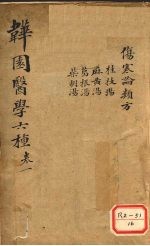 傷寒論類方
桂枝湯
麻黃湯
葛根湯
柴胡湯
韡園醫學六種 卷一
R2-51
16